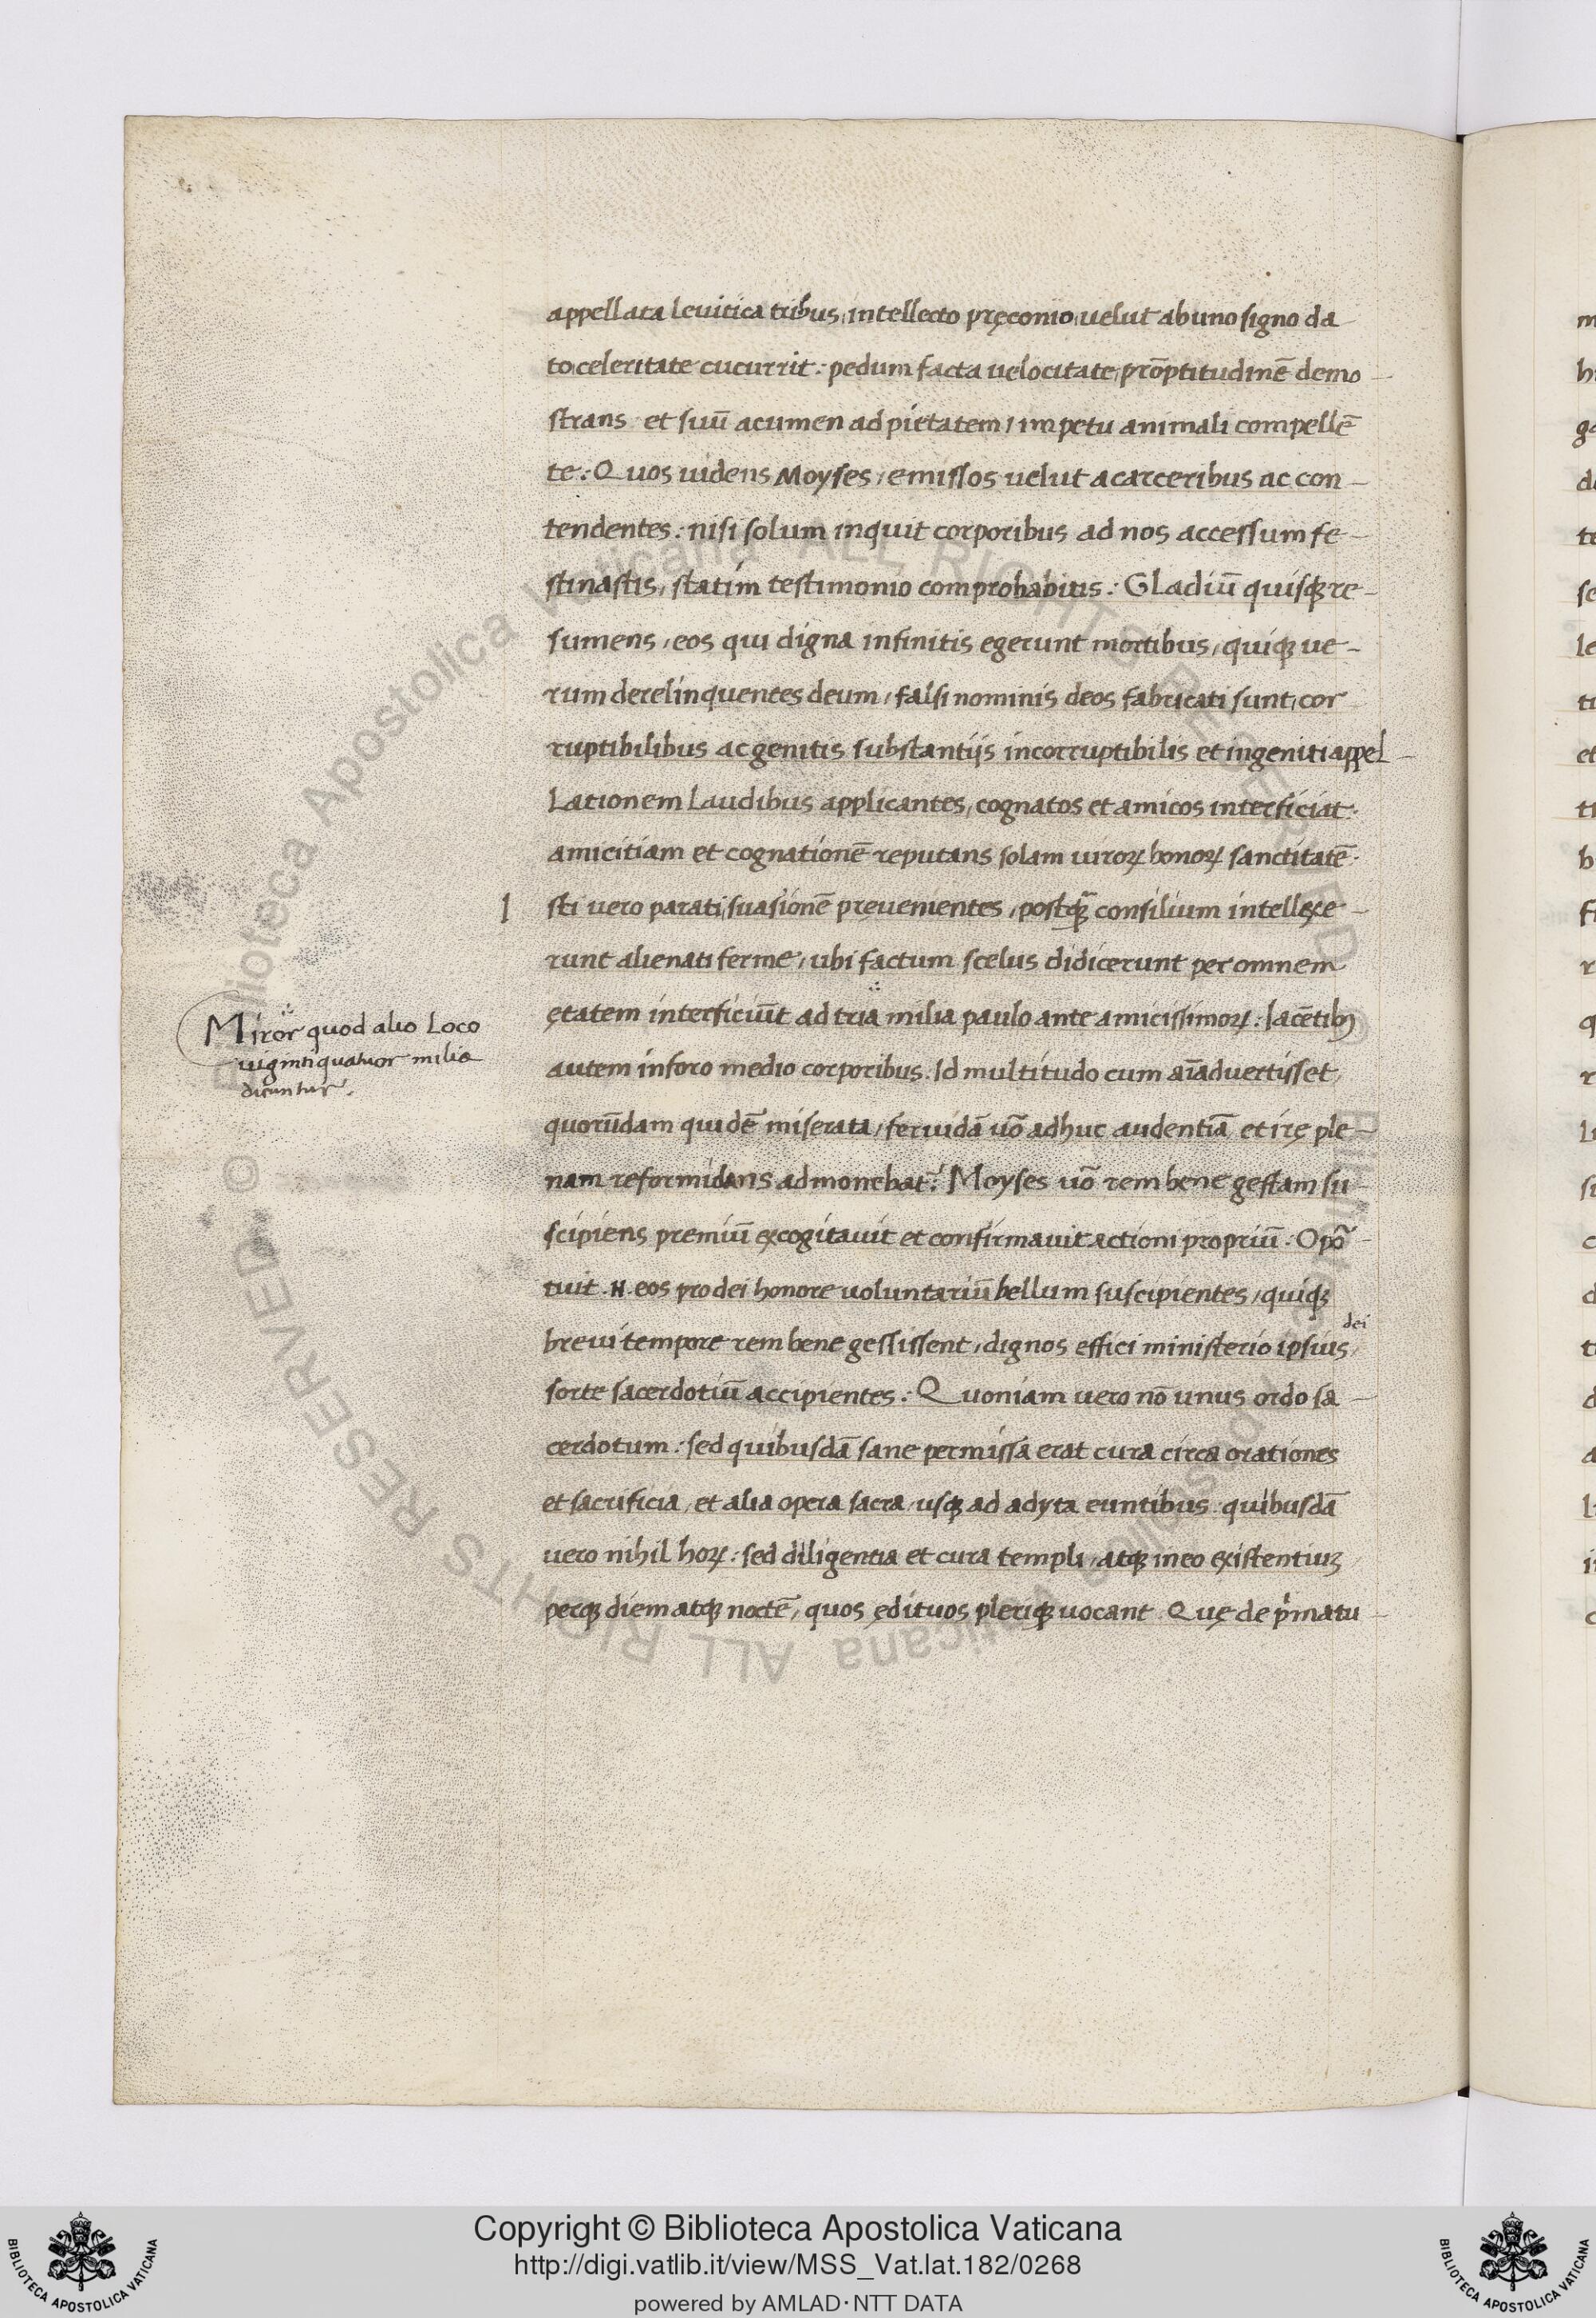 appellata leuitica tribus, intellecto pręconio, uelut ab uno signo da
to, celeritate cucurrit: pedum facta uelocitate, prōptitudinē demo-
strans et suū acumen ad pietatem, impetu animali compellē
te: Quos uidens Moyses, emissos uelut a carceribus ac con-
tendentes: nisi solum inquit corporibus ad nos accessum fe-
stinastis, statim testimonio comprobabitis: Gladiū quisqꝫ re-
sumens, eos qui digna infinitis egerunt mortibus, quiqꝫ ue-
rum derelinquentes deum, falsi nominis deos fabricati sunt, cor
ruptibilibus ac genitis substantijs incorruptibilis et ingeniti appel-
lationem laudibus applicantes, cognatos et amicos interficiat.
amicitiam et cognationē reputans solam uiroꝝ bonoꝝ sanctitatē.
I sti uero parati, suasionē pręuenientes, postqꝫ̄ consilium intellexe-
runt alienati ferme, ubi factum scelus didicerunt per omnem
ętatem interficiūt ad tria milia paulo ante amicissimoꝝ: Iacētibꝫ
Miror quod alio loco
uiginti quatuor milia
dicuntur.
autem in foro medio corporibus. Id multitudo cum aīaduertisset,
quorūdam quidē miserata, feruidā uō adhuc audentiā et irę ple-
nam reformidans admonebat: Moyses uō rem bene gestam su-
scipiens premiū excogitauit et confirmauit actioni propriū: Opō-
tuit .N. eos pro dei honore uoluntariū bellum suscipientes, quiqꝫ
dei
breui tempore rem bene gessissent, dignos effici ministerio ipsius,
sorte sacerdotiū accipientes: Quoniam uero nō unus ordo sa-
cerdotum: sed quibusdā sane permissa erat cura circa orationes
et sacrificia, et alia opera sacra, usqꝫ ad adyta euntibus: quibusdā
uero nihil hoꝝ: sed diligentia et cura templi, atqꝫ in eo existentiuꝫ
perqꝫ diem atqꝫ noctē, quos ędituos pleriqꝫ uocant. Quę de pͥmatu-
Copyright © Biblioteca Apostolica Vaticana
http://digi.vatlib.it/view/MSS_Vat.lat.182/0268
powered by AMLAD·NTT DATA